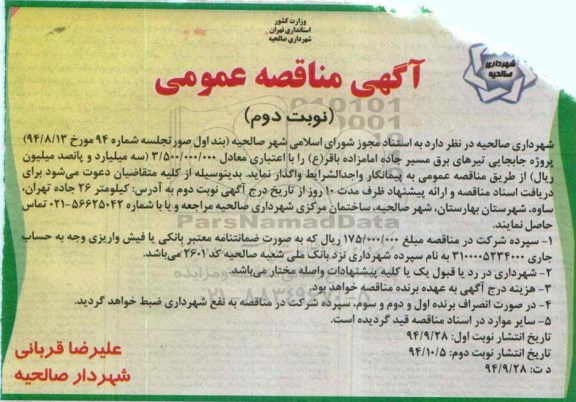 وزارت کشور
استانداری تهران
شهرداری صالحیه
شهرداری
صالحیه
آگهی مناقصه عمومی
(نوبت دوم)
شهرداری صالحیه در نظر دارد به استناد مجوز شورای اسلامی شهر صالحیه (بند اول صورتجلسه شماره ۹۴ مورخ ۹۴/۸/۱۳)
پروژه جابجایی تیرهای برق مسیر جاده امامزاده باقر(ع) را با اعتباری معادل ۳/۵۰۰/۰۰۰/۰۰۰ (سه میلیارد و پانصد میلیون
ریال) از طریق مناقصه عمومی به پیمانکار واجدالشرایط واگذار نماید. بدینوسیله از کلیه متقاضیان دعوت می‌شود برای
دریافت اسناد مناقصه و ارائه پیشنهاد ظرف مدت ۱۰ روز از تاریخ درج آگهی نوبت دوم به آدرس: کیلومتر ۲۶ جاده تهران،
ساوه، شهرستان بهارستان، شهر صالحیه، ساختمان مرکزی شهرداری صالحیه مراجعه و یا با شماره ۵۶۶۲۵۰۴۲-۰۲۱ تماس
حاصل نمایند.
۱- سپرده شرکت در مناقصه مبلغ ۱۷۵/۰۰۰/۰۰۰ ریال که به صورت ضمانتنامه معتبر بانکی یا فیش واریزی وجه به حساب
جاری ۳۱۰۰۰۵۲۳۴۰۰۰ به نام سپرده شهرداری نزد بانک ملی شعبه صالحیه کد ۲۶۰۱ می‌باشد.
۲- شهرداری در رد یا قبول یک یا کلیه پیشنهادات واصله مختار می‌باشد.
۳- هزینه درج آگهی به عهده برنده مناقصه خواهد بود.
۴- در صورت انصراف برنده اول و دوم و سوم، سپرده شرکت در مناقصه به نفع شهرداری ضبط خواهد گردید.
۵- سایر موارد در اسناد مناقصه قید گردیده است.
تاریخ انتشار نوبت اول: ۹۴/۹/۲۸
تاریخ انتشار نوبت دوم: ۹۴/۱۰/۵
د ت: ۹۴/۹/۲۸
علیرضا قربانی
شهردار صالحیه
ParsNamadData